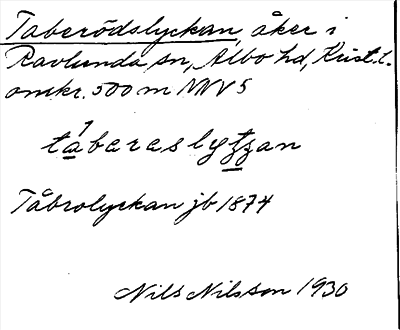 Taberödslyckan, åker i
Ravlunda sn, Albo hd, Krist. l.
omkr. 500 m NNV 5
tabereslyțțan
Tåbrolyckan jb 1874
Nils Nilsson 1930